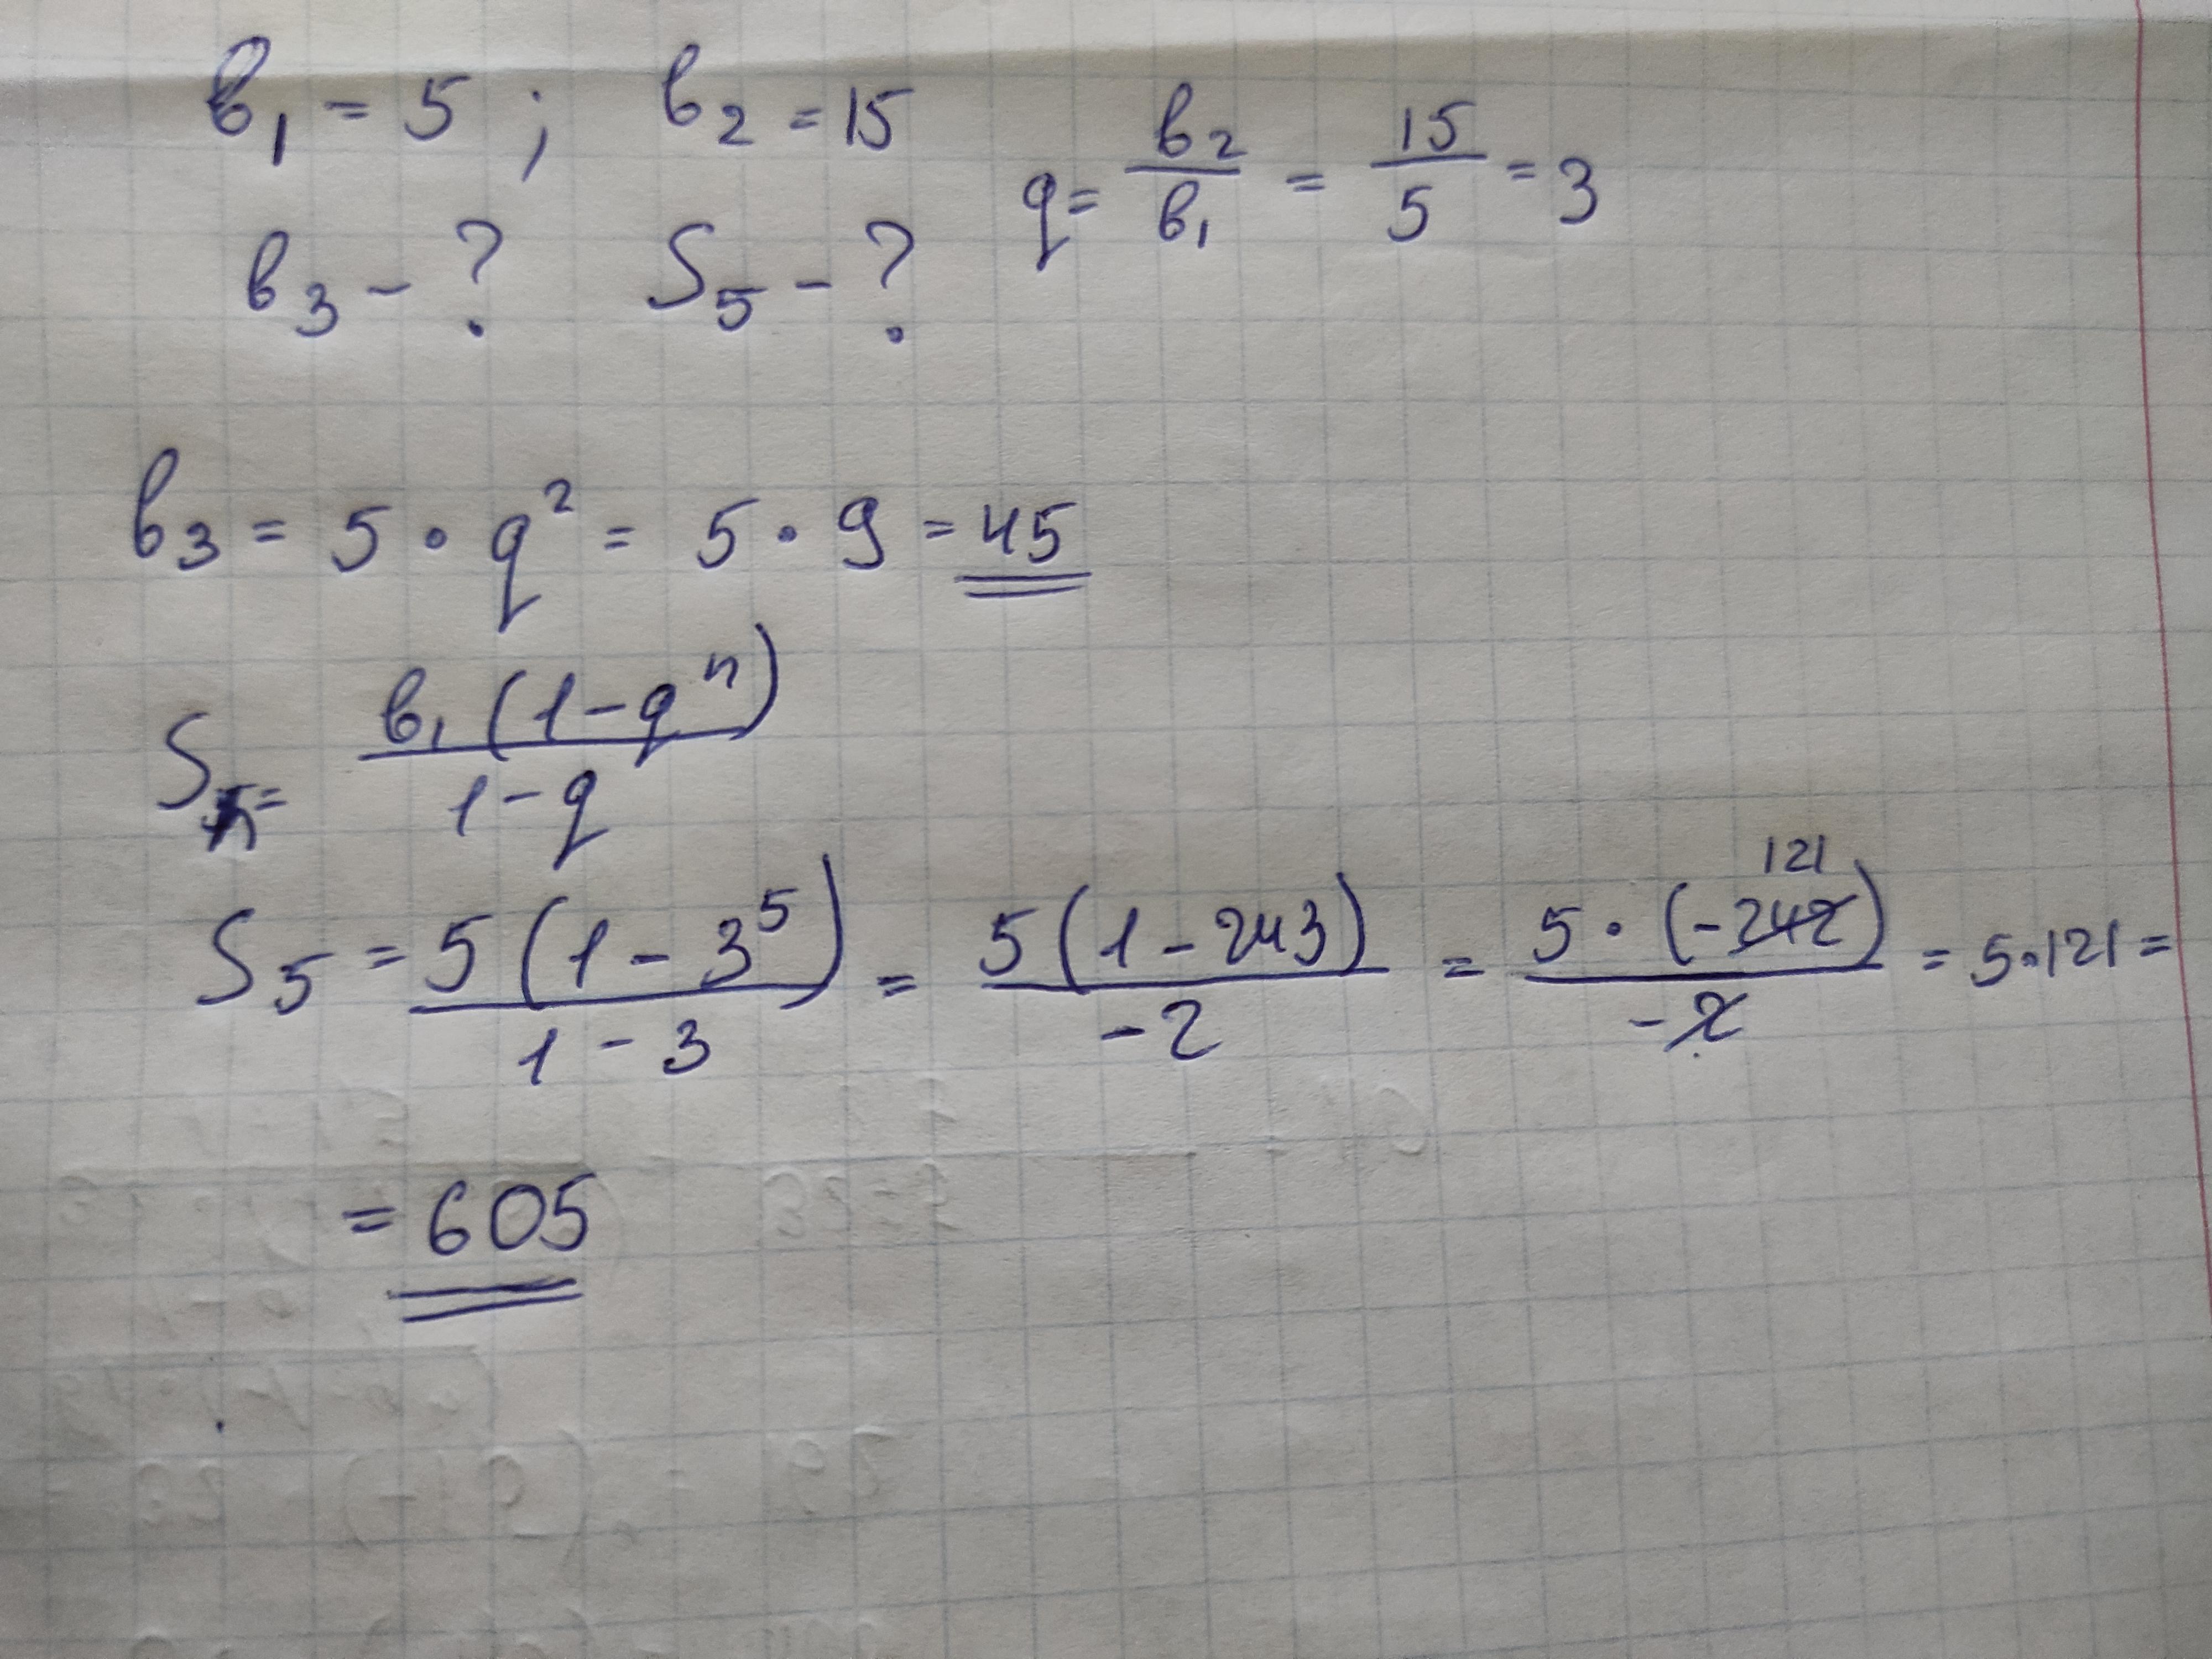 b₁ = 5 ; b₂ = 15 q = b₂/b₁ = 15/5 = 3
b₃ - ? S₅ - ?
b₃ = 5 · q² = 5 · 9 = 45
Sₙ = b₁(1-qⁿ)/1-q
S₅ = 5(1-3⁵)/1-3 = 5(1-243)/-2 = 5·(-242)/-2 121 = 5·121 =
= 605